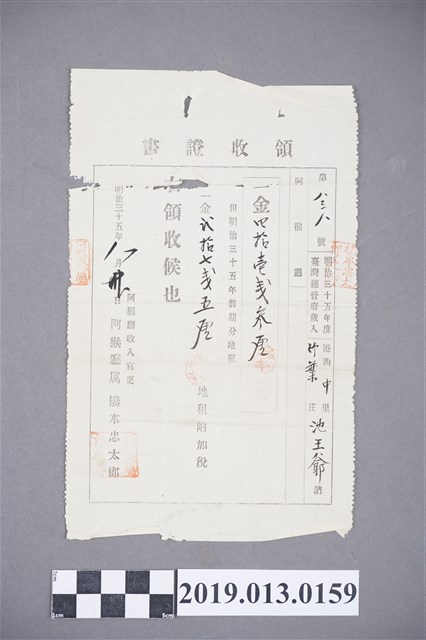 領收證書
第八三八號
明治三十五年度
臺灣總督府歲入
港西中里
竹葉庄
池王爺 納
阿猴廳
一金四拾壹戔參厘
但明治三十五年前期分地租
一金弍拾七戔五厘
地租附加稅
右領收候也
明治三十五年八月 日
阿猴廳收入官吏
阿猴廳属 水忠太郎
5cm
2019.013.0159